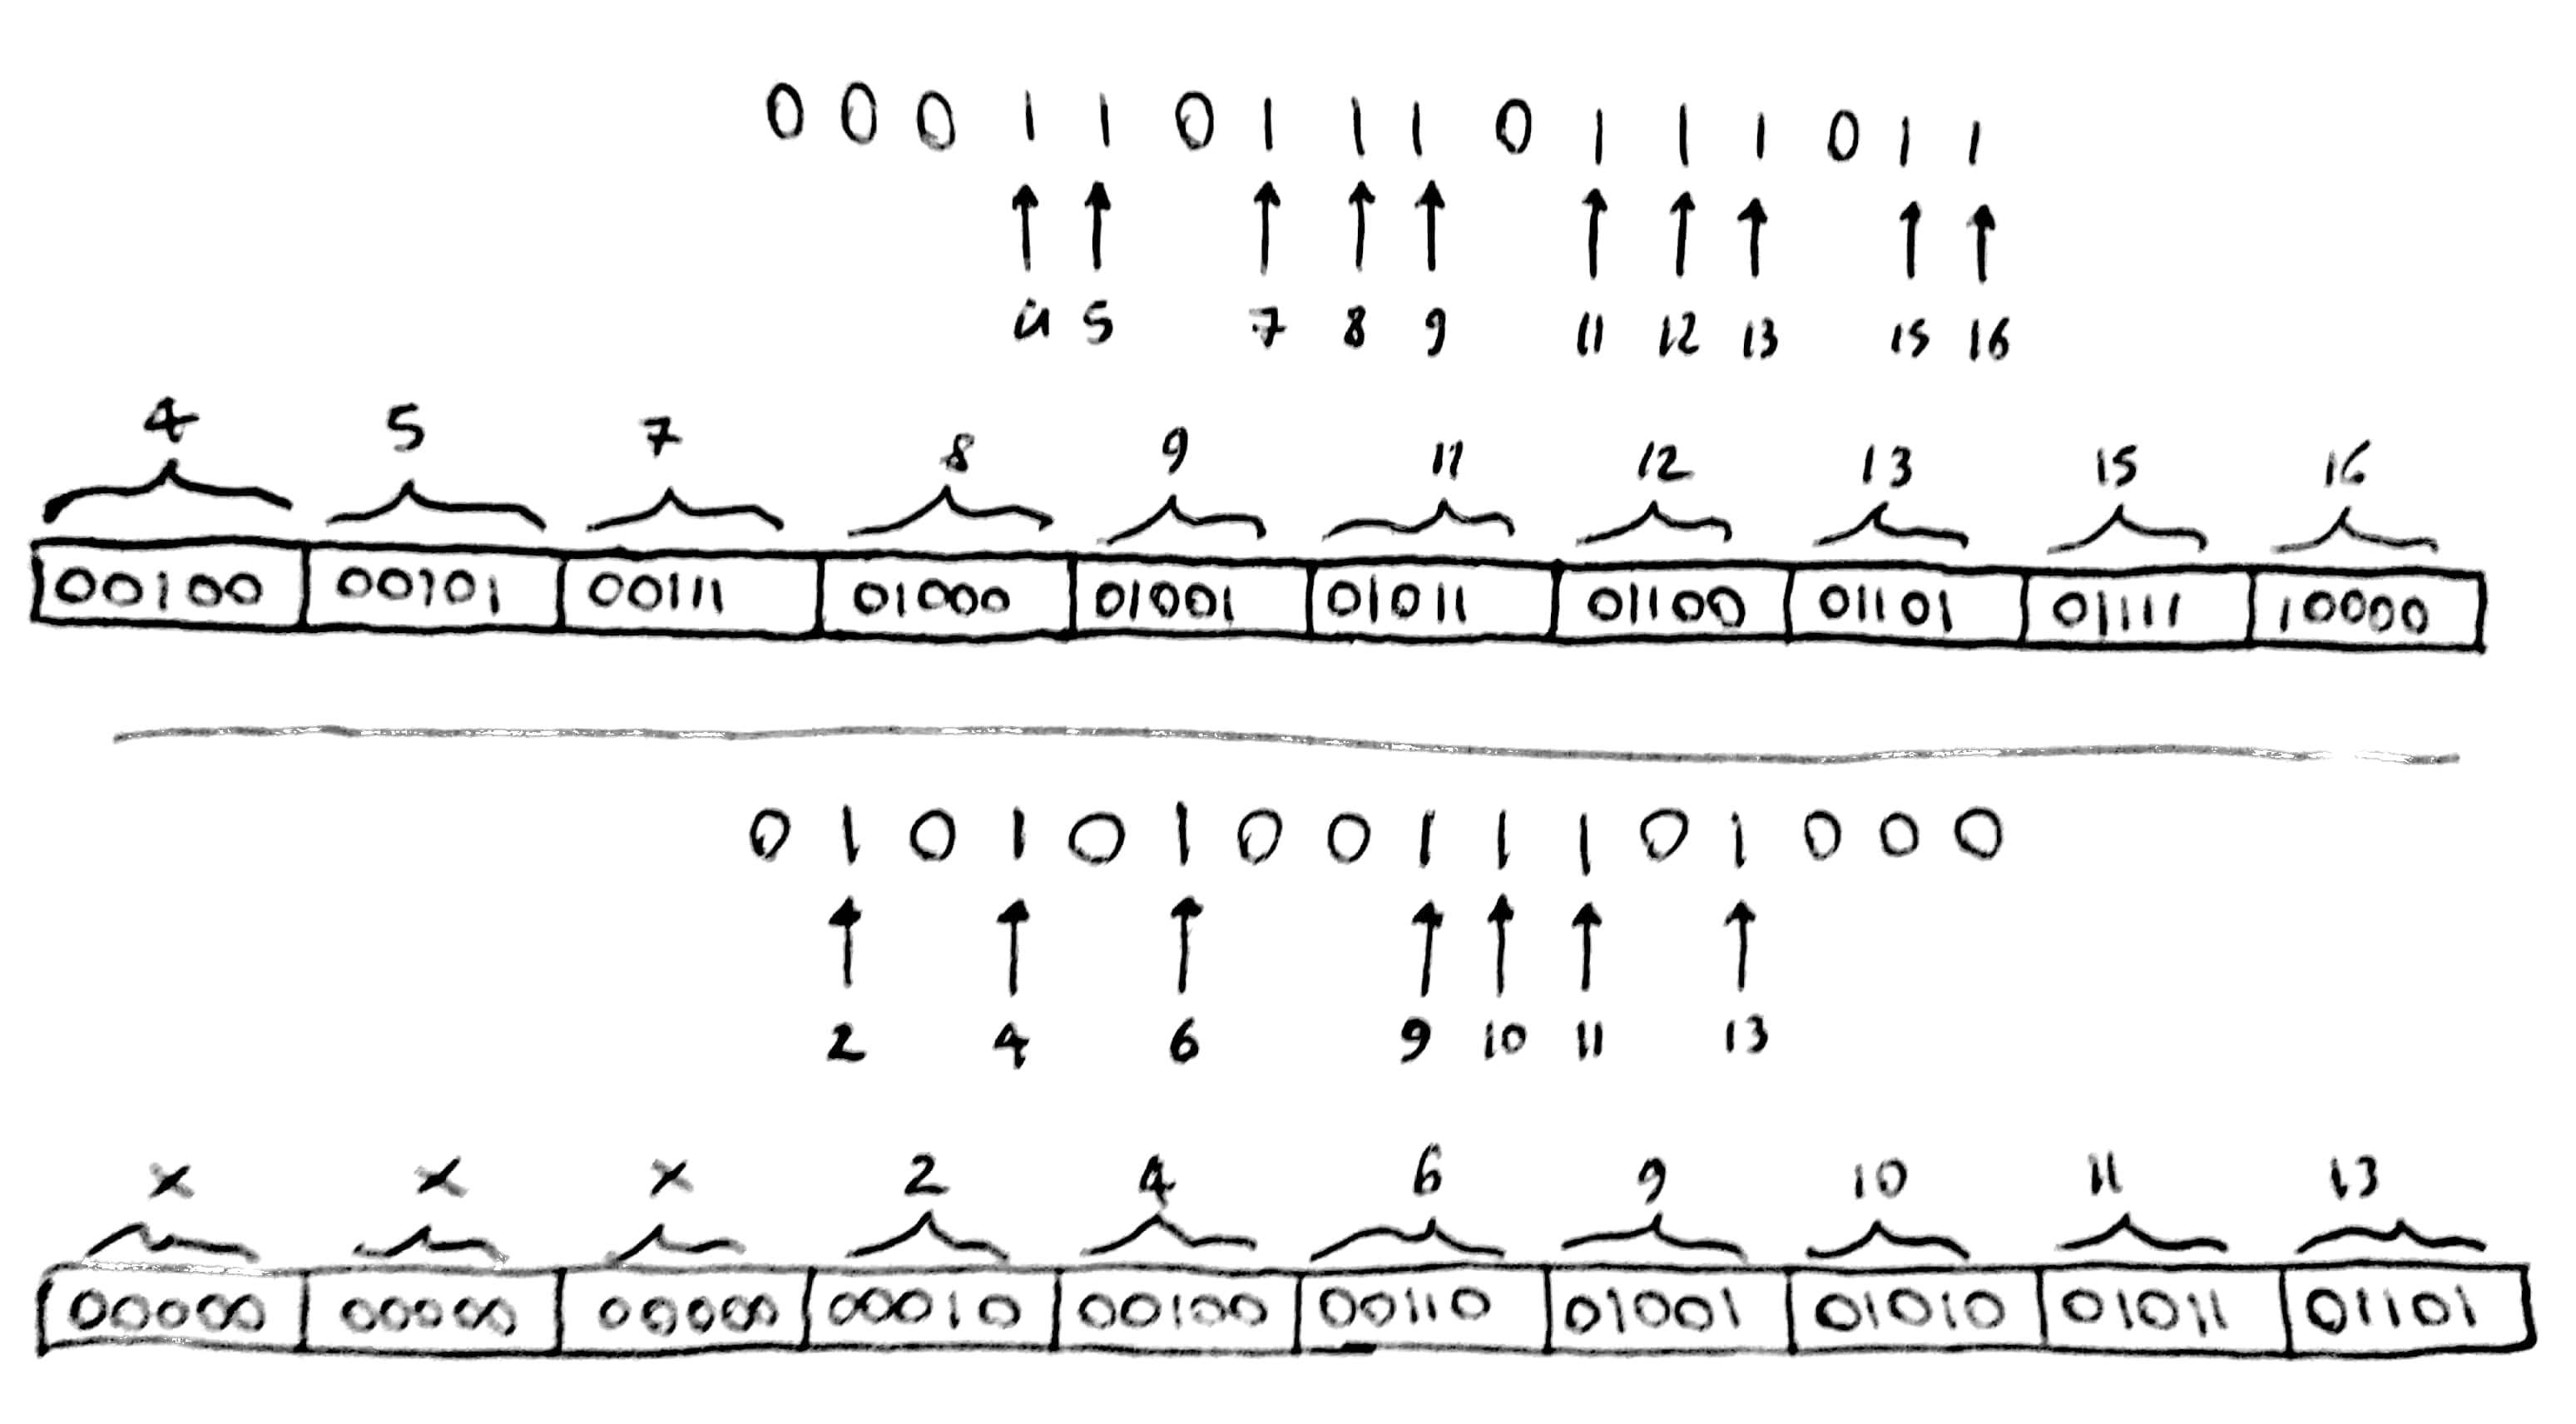 0 0 0 1 1 0 1 1 1 0 1 1 1 0 1 1
4 5 7 8 9 11 12 13 15 16
4 5 7 8 9 11 12 13 15 16
00100 00101 00111 01000 01001 01011 01100 01101 01111 10000
0 1 0 1 0 1 0 0 1 1 1 0 1 0 0 0
2 4 6 9 10 11 13
x x x 2 4 6 9 10 11 13
00000 00000 00000 00010 00100 00110 01001 01010 01011 01101